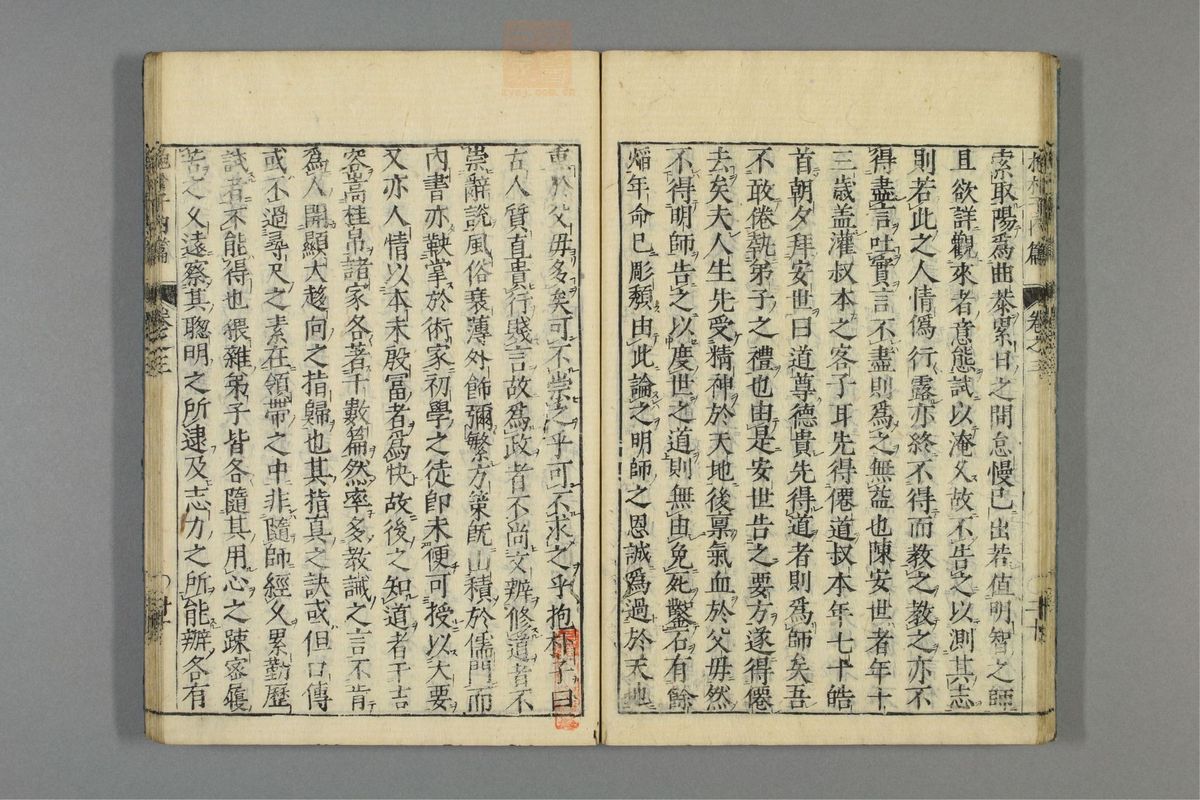 索取陽爲曲恭累日之間怠慢已出若值明智之師
且欲詳觀來者意態試以淹久故不告之以測其志
則若此之人情僞行露亦終不得而教之教之亦不
得盡言吐實言不盡則爲之無益也陳安世者年十
三歲蓋灌叔本之客子耳先得僊道叔本年七十皓
首朝夕拜安世曰道尊德貴先得道者則爲師矣吾
不敢倦執弟子之禮也由是安世告之要方遂得僊
去矣夫人生先受精神於天地後禀氣血於父母然
不得明師告之以度世之道則無由免死鑿石有餘
焰年命已彫頹由此論之明師之恩誠爲過於天地
重於父母多矣可不崇之乎可不求之乎抱朴子曰
古人質直貴行賤言故爲政者不尚文辨修道者不
崇辭說風俗衰薄外飾彌繁方策旣山積於儒門而
内書亦鞅掌於術家初學之徒卽未便可授以大要
又亦人情以本末殷富者爲快故後之知道者干吉
容嵩桂帛諸家各著千數篇然率多教誡之言不肯
爲人開顯大趍向之指歸也其指真之訣或但口傳
或不過尋尺之素在領帶之中非隨師經久累勤歷
試者不能得也猥雜弟子皆各隨其用心之踈密履
苦之久遠察其聰明之所逮及志力之所能辨各有
抱朴子内篇
卷之三